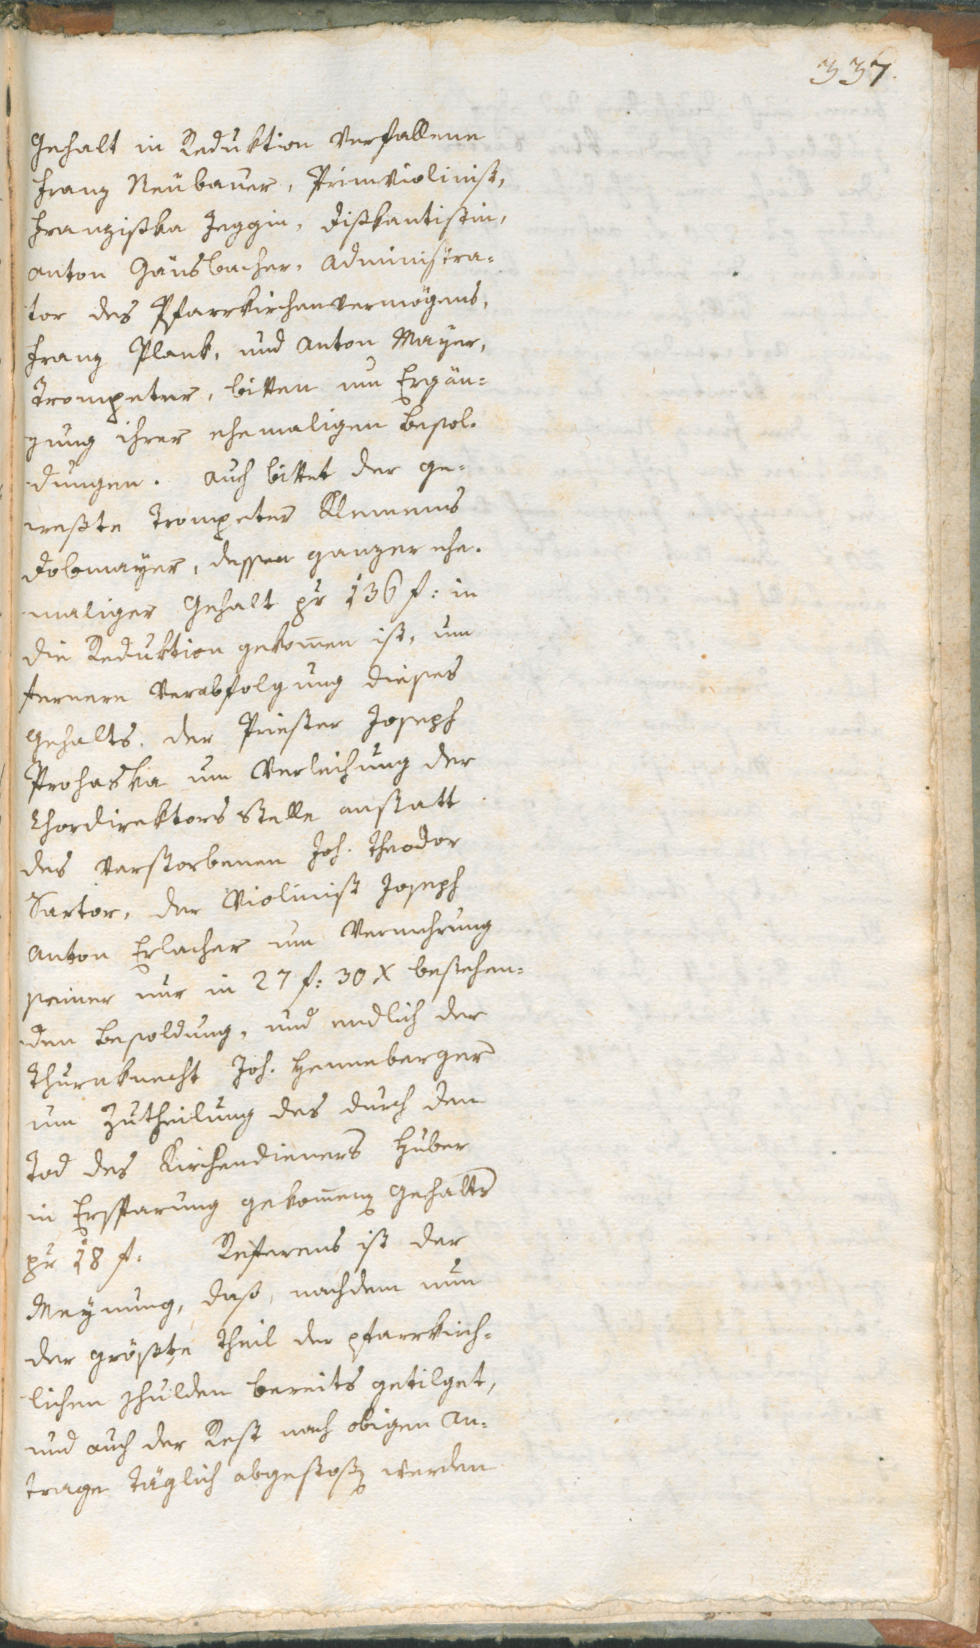 337.
Gehalt in Reduktion verfallene
Franz Neübauer, Primviolinist,
Franzißka Jeggin, Dißkantistin,
Anton Gänsbacher, Administra=
tor des Pfarrkirchenvermögens,
Franz Plank, und Anton Mayer,
Trompeter, bitten um Ergän=
zung ihrer ehemaligen Besol=
dungen. Auch bittet der ge=
weßte Trompeter Klemens
Dobmayer, dessen ganzer ehe=
maliger Gehalt pr 136 f: in
die Reduktion gekom̄en ist, um
fernere Verabfolgung dieses
Gehalts. Der Priester Joseph
Prohaska um Verleihung der
Chordirektors Stelle anstatt
des verstorbenen Joh. Theodor
Sartor, der Violinist Joseph
Anton Erlacher um Vermehrung
seiner nur in 27 f: 30 X bestehen=
den Besoldung, und endlich der
Thurnknecht Joh. Henneberger
um Zutheilung des durch den
Tod des Kirchendieners Huber
in Ersparung gekom̄enen Gehalts
pr 18 f: Referens ist der
Meynung, daß, nachdem nun
der größte Theil der pfarrkirch=
lichen Schulden bereits getilget,
und auch der Rest nach obigen An=
trage täglich abgestoßen werden